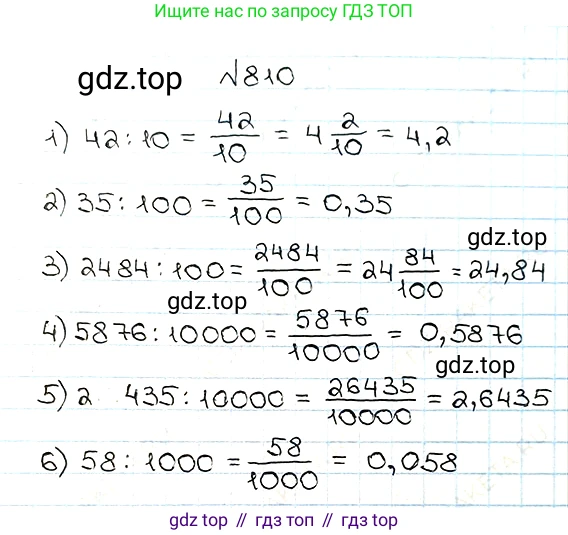 Ищите нас по запросу ГДЗ ТОП
gdz.top №810
1) 42 : 10 = 42/10 = 4 2/10 = 4,2
2) 35 : 100 = 35/100 = 0,35
gdz.top
3) 2484 : 100 = 2484/100 = 24 84/100 = 24,84
gdz.top
4) 5876 : 10000 = 5876/10000 = 0,5876
gdz.top
5) 2 435 : 10000 = 26435/10000 = 2,6435
6) 58 : 1000 = 58/1000 = 0,058
gdz.top // гдз топ // gdz.top